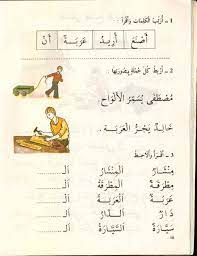 1 - أُرَتِّبُ الْكَلِمَاتِ وَأَقْرَأُ :
أَصْنَعَ أُرِيدُ عَرَبَةً أَنْ
2 - أَرْبِطُ كُلَّ جُمْلَةٍ بِصُورَتِهَا :
مُصْطَفَى يُسَمِّرُ الْأَلْوَاحَ.
خَالِدٌ يَجُرُّ الْعَرَبَةَ.
3 - أَقْرَأُ وَأُلَاحِظُ
مِنْشَارٌ الْمِنْشَارُ الْـ ......
مِطْرَقَةٌ الْمِطْرَقَةُ الْـ ......
عَرَبَةٌ الْعَرَبَةُ الْـ ......
دَارٌ الدَّارُ الـ ......
سَيَّارَةٌ السَّيَّارَةُ الـ ......